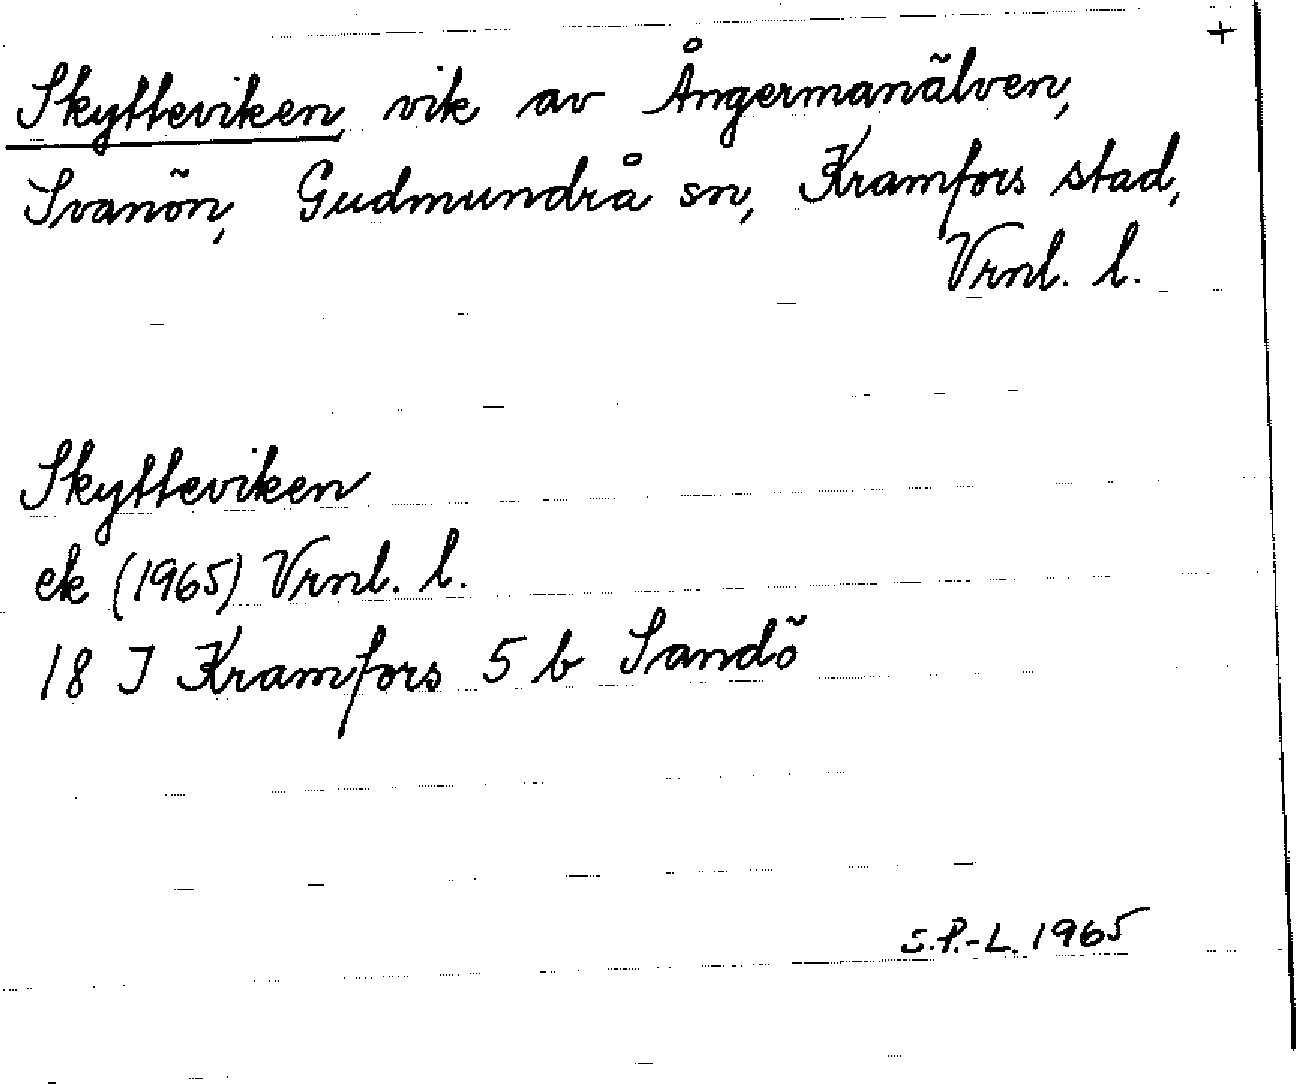 +
Skytteviken, vik av Ångermanälven,
Svanön, Gudmundrå sn, Kramfors stad,
Vrnl. l.
Skytteviken
ek (1965) Vrnl. l.
18 I Kramfors 5 b Sandö
S.P.-L. 1965